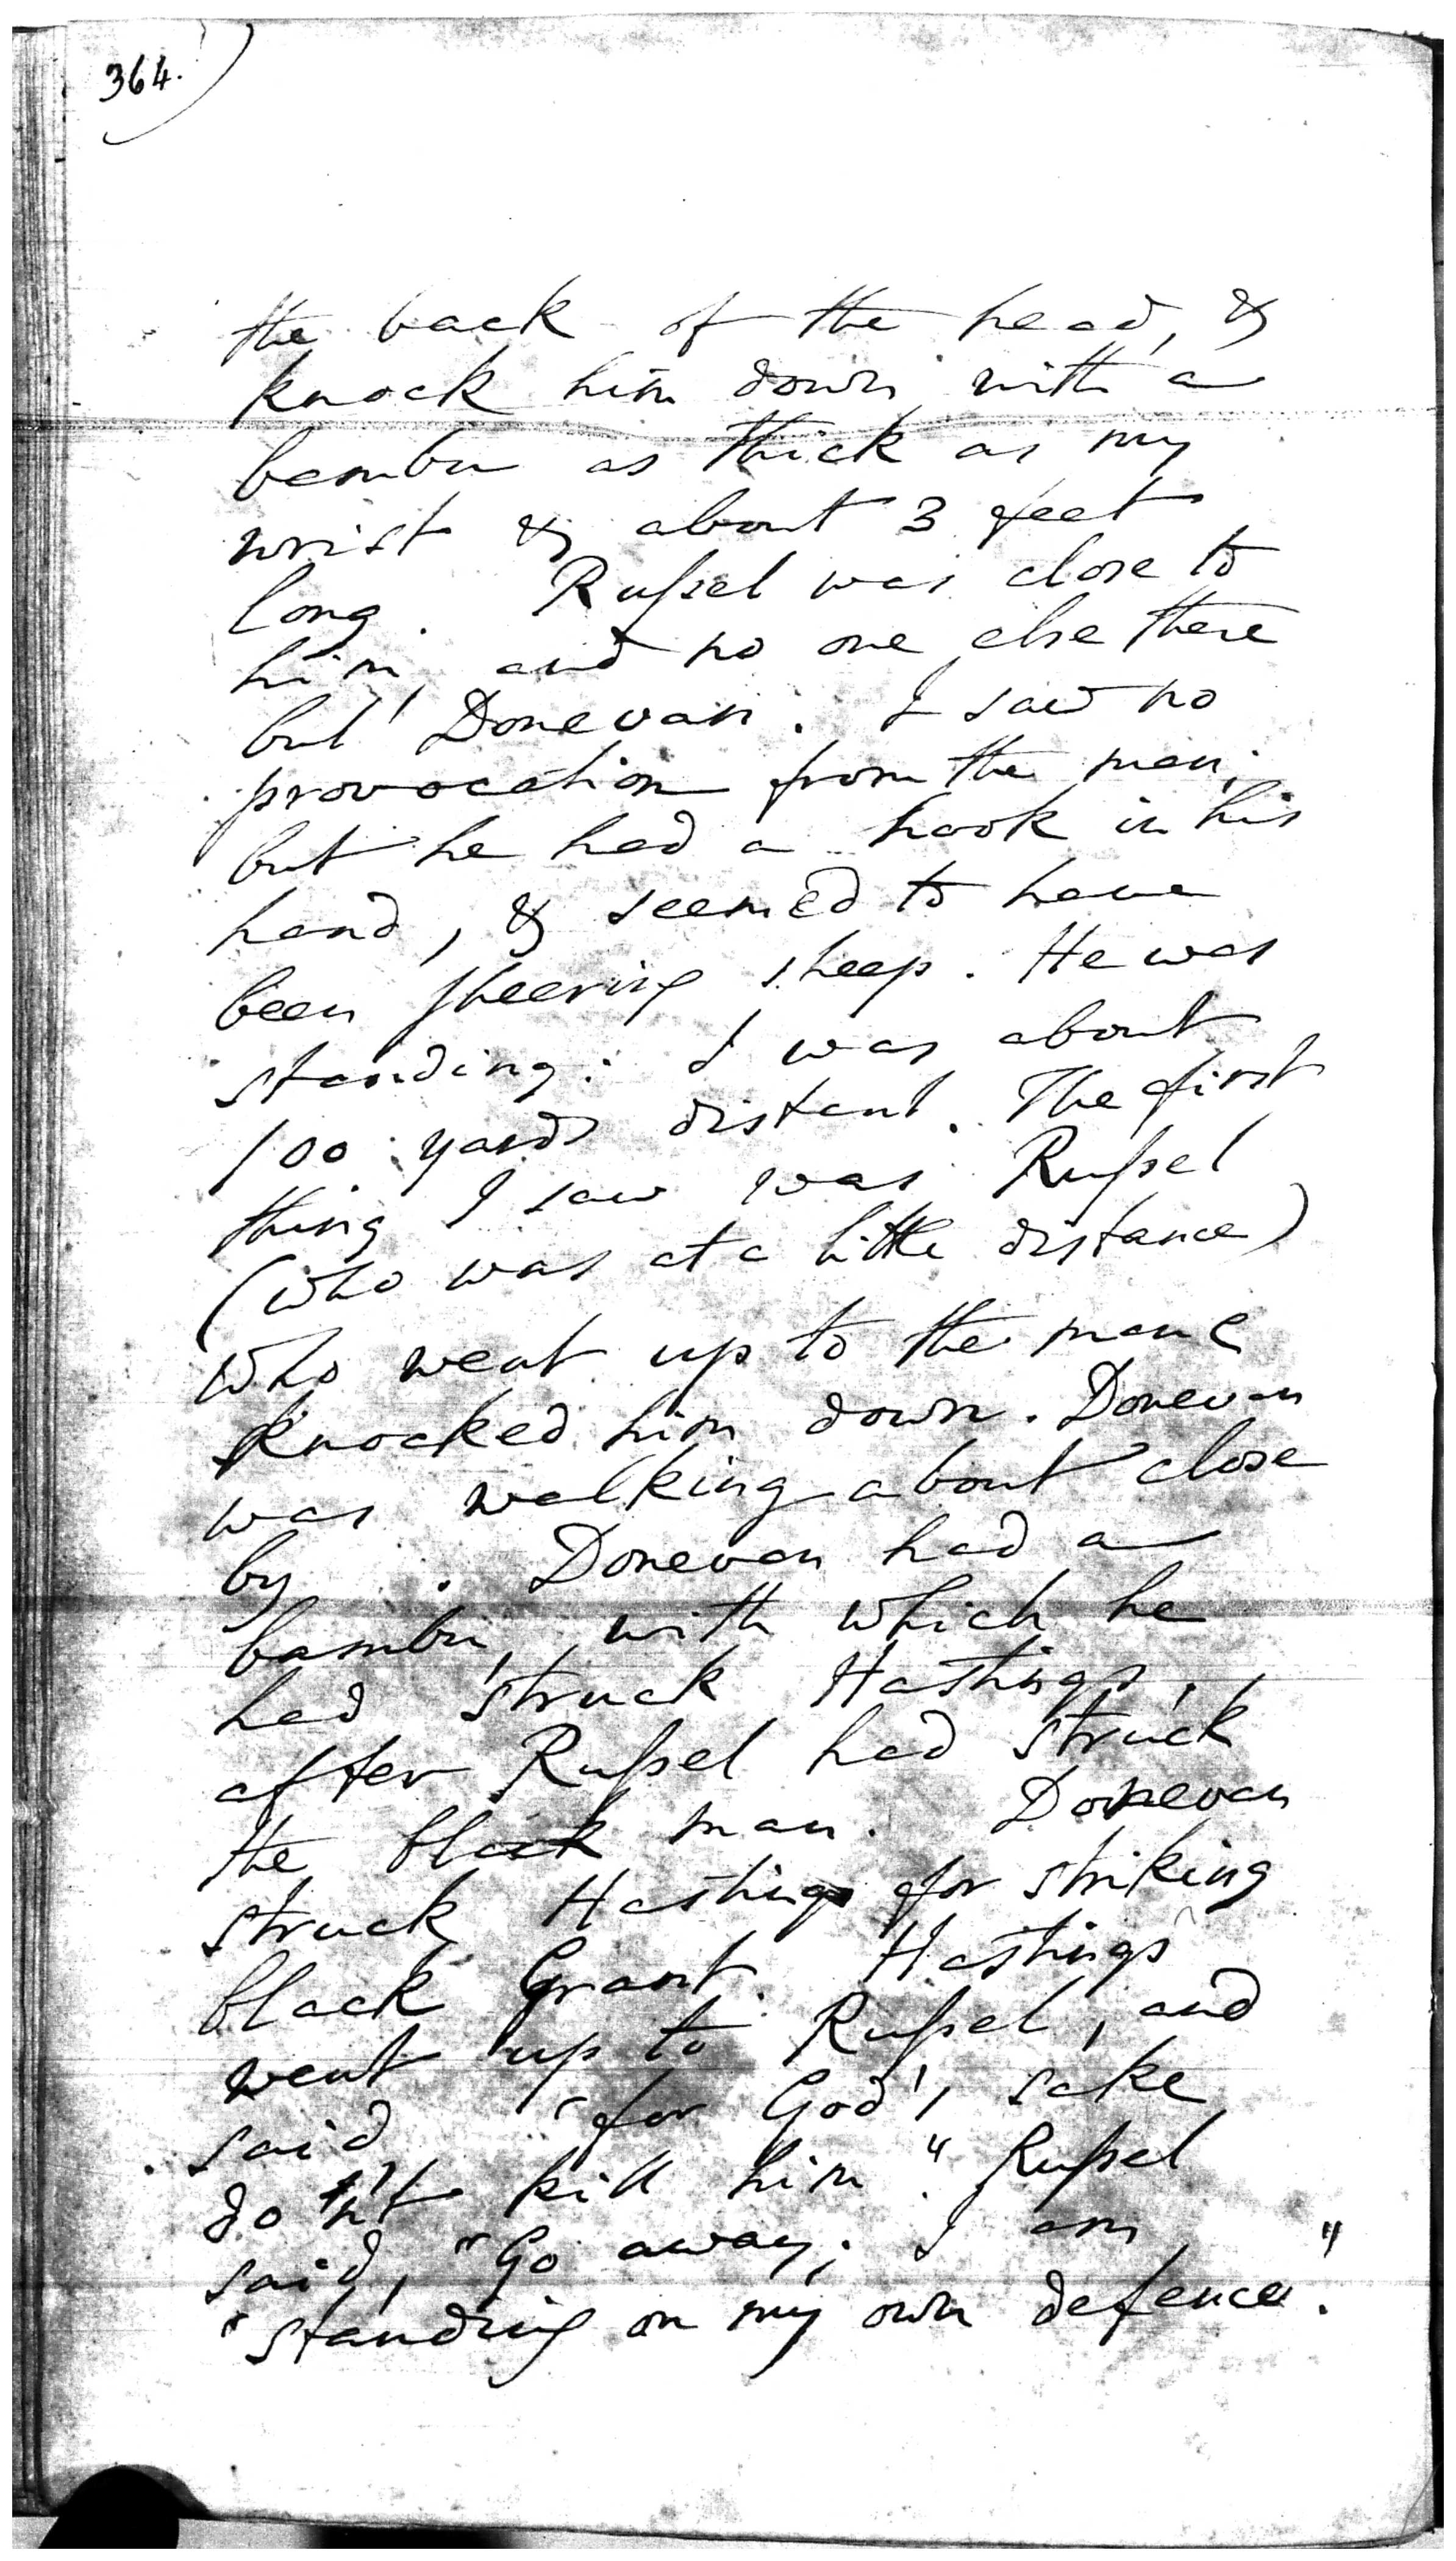 364.)
the back of the head, &
knock him down with a
bambu as thick as my
wrist & about 3 feet
long. Rufsel was close to
him, and no one else there
but Donevan. I saw no
provocation from the man;
but he had a hook in his
hand, & seemed to have
been sheering sheep. He was
standing: I was about
100 yards distant. The first
thing I saw was Rufsel
(who was at a little distance)
who went up to the man &
knocked him down. Donevan
was walking about close
by. Donevan had a
bambu, with which he
had struck Hastings,
after Rufsel had struck
the black man. Donevan
struck Hastings for striking
black Grant. Hastings
went up to Rufsel, and
said "for God's sake
do n't kill him." Rufsel
said, "Go away; I am
"standing on my own defence."